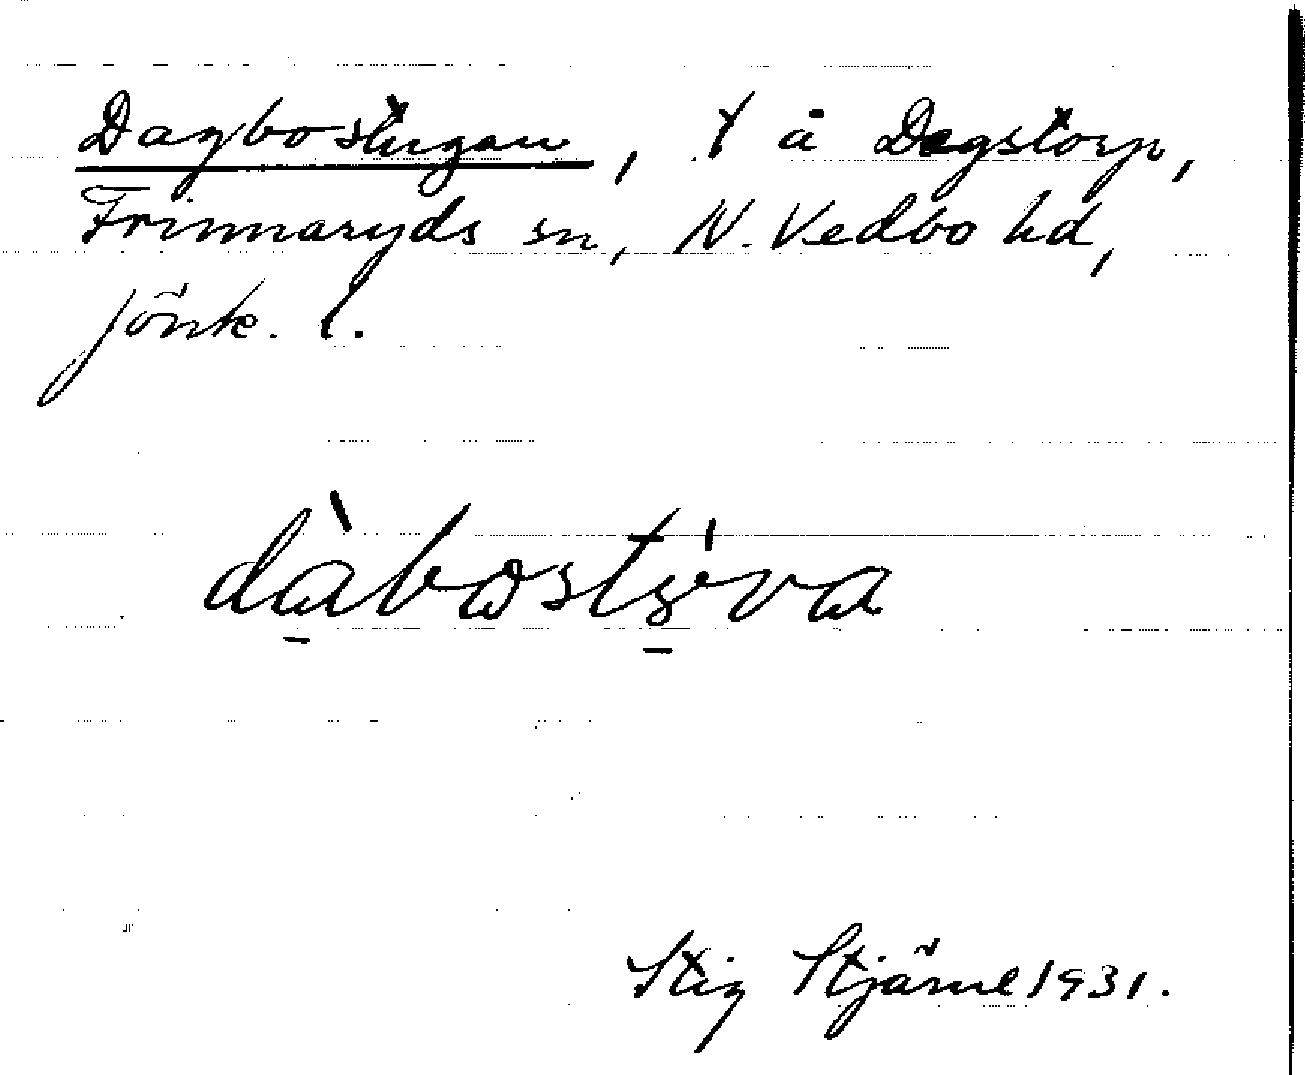 Dagbostugan, t å Dagstorp,
Frinnaryds sn, N. Vedbo hd,
Jönk. l.
dàbostýva
Stig Stjärne 1931.